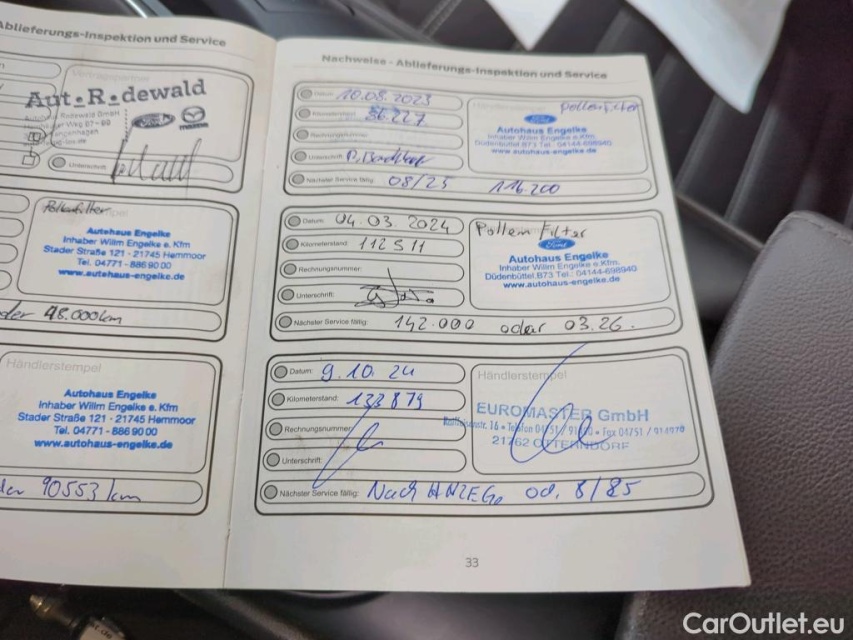 Ablieferungs-Inspektion und Service
Vertragspartner
Aut.R.dewald
Rodewald GmbH
mazda
Unterschrift:
Pollenfilter
Autohaus Engelke
Inhaber Wilm Engelke e. Kfm
Stader Straße 121 - 21745 Hemmoor
Tel. 04771 - 886 90 00
www.autohaus-engelke.de
48.000km
Händlerstempel
Autohaus Engelke
Inhaber Wilm Engelke e. Kfm
Stader Straße 121 - 21745 Hemmoor
Tel. 04771 - 886 90 00
www.autohaus-engelke.de
90553 km
Nachweise - Ablieferungs-Inspektion und Service
Datum: 10.08.2023
Kilometerstand: 86.227
Rechnungsnummer:
Unterschrift:
Nächster Service fällig: 08/25 116.200
Pollenfilter
Ford
Autohaus Engelke
Inhaber Wilm Engelke e.Kfm.
Düdenbüttel B73 Tel. 04144-698940
www.autohaus-engelke.de
Datum: 04.03.2024
Kilometerstand: 112511
Rechnungsnummer:
Unterschrift:
Nächster Service fällig: 142.000 oder 03.26.
Pollen Filter
Ford
Autohaus Engelke
Inhaber Wilm Engelke e.Kfm.
Düdenbüttel B73 Tel. 04144-698940
www.autohaus-engelke.de
Datum: 9.10.24
Kilometerstand: 133879
Rechnungsnummer:
Unterschrift:
Nächster Service fällig: Nach ANZEG. od. 8/25
Händlerstempel
EUROMASTER GmbH
16 • Telefon 04751 / • Fax 04751 /
21762 OTTERNDORF
33
CarOutlet.eu